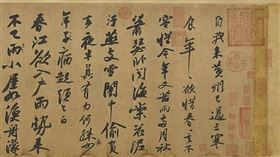 自我來黃州已過三寒
食年〻欲惜春春去不
容惜今年又苦雨兩月秋
蕭瑟卧聞海棠花泥
汙燕支雪闇中偷負
去夜半真有力何殊少
年子病起頭已白
春江欲入戶雨勢來
不已雨小屋如漁舟濛